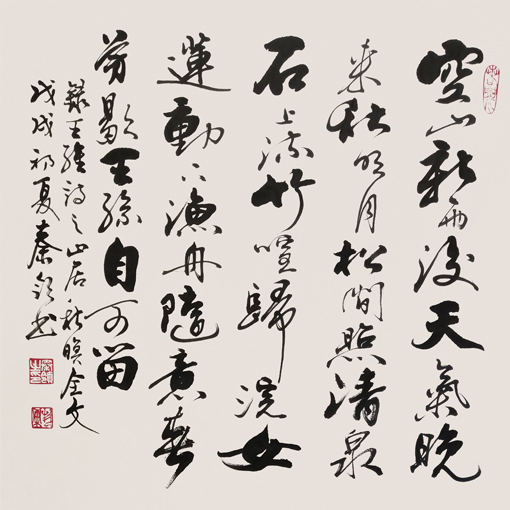 空山新雨後天氣晚
来秋明月松間照清泉
石上流竹喧歸浣女
蓮動下漁舟隨意春
芳歇王孫自可留
錄王維詩之山居秋暝全文
戊戌初夏秦书